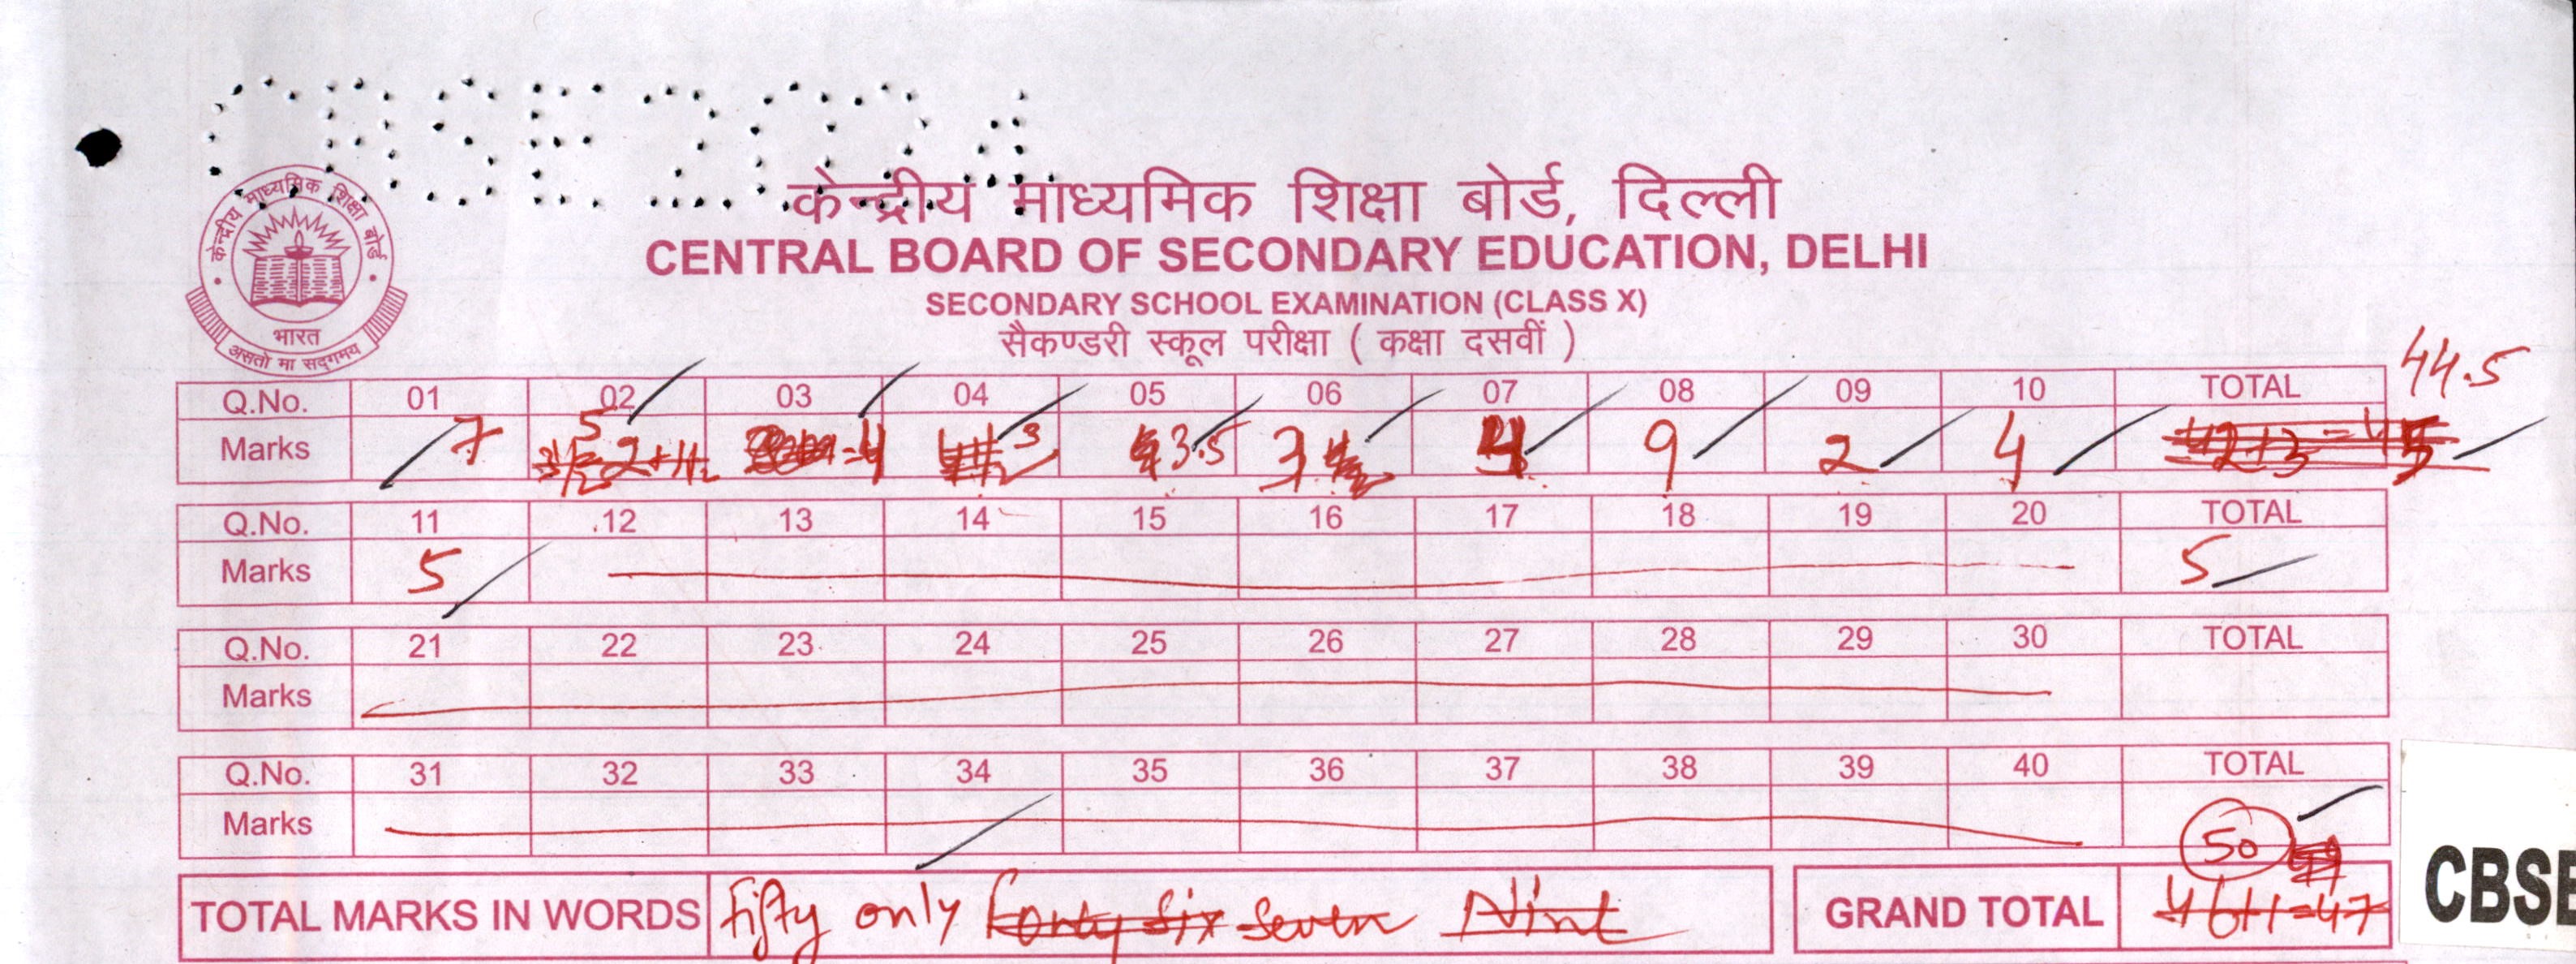 CBSE2024
केन्द्रीय माध्यमिक शिक्षा बोर्ड
भारत
असतो मा सद्गमय
केन्द्रीय माध्यमिक शिक्षा बोर्ड, दिल्ली
CENTRAL BOARD OF SECONDARY EDUCATION, DELHI
SECONDARY SCHOOL EXAMINATION (CLASS X)
सैकण्डरी स्कूल परीक्षा ( कक्षा दसवीं )
44.5
Q.No. 01 02 03 04 05 06 07 08 09 10 TOTAL
Marks 7 5 =4 3 3.5 3 4 9 2 4 42+3=45
Q.No. 11 12 13 14 15 16 17 18 19 20 TOTAL
Marks 5 5
Q.No. 21 22 23 24 25 26 27 28 29 30 TOTAL
Marks
Q.No. 31 32 33 34 35 36 37 38 39 40 TOTAL
Marks 50
TOTAL MARKS IN WORDS Fifty only Forty six Seven GRAND TOTAL 46+1=47
CBSE